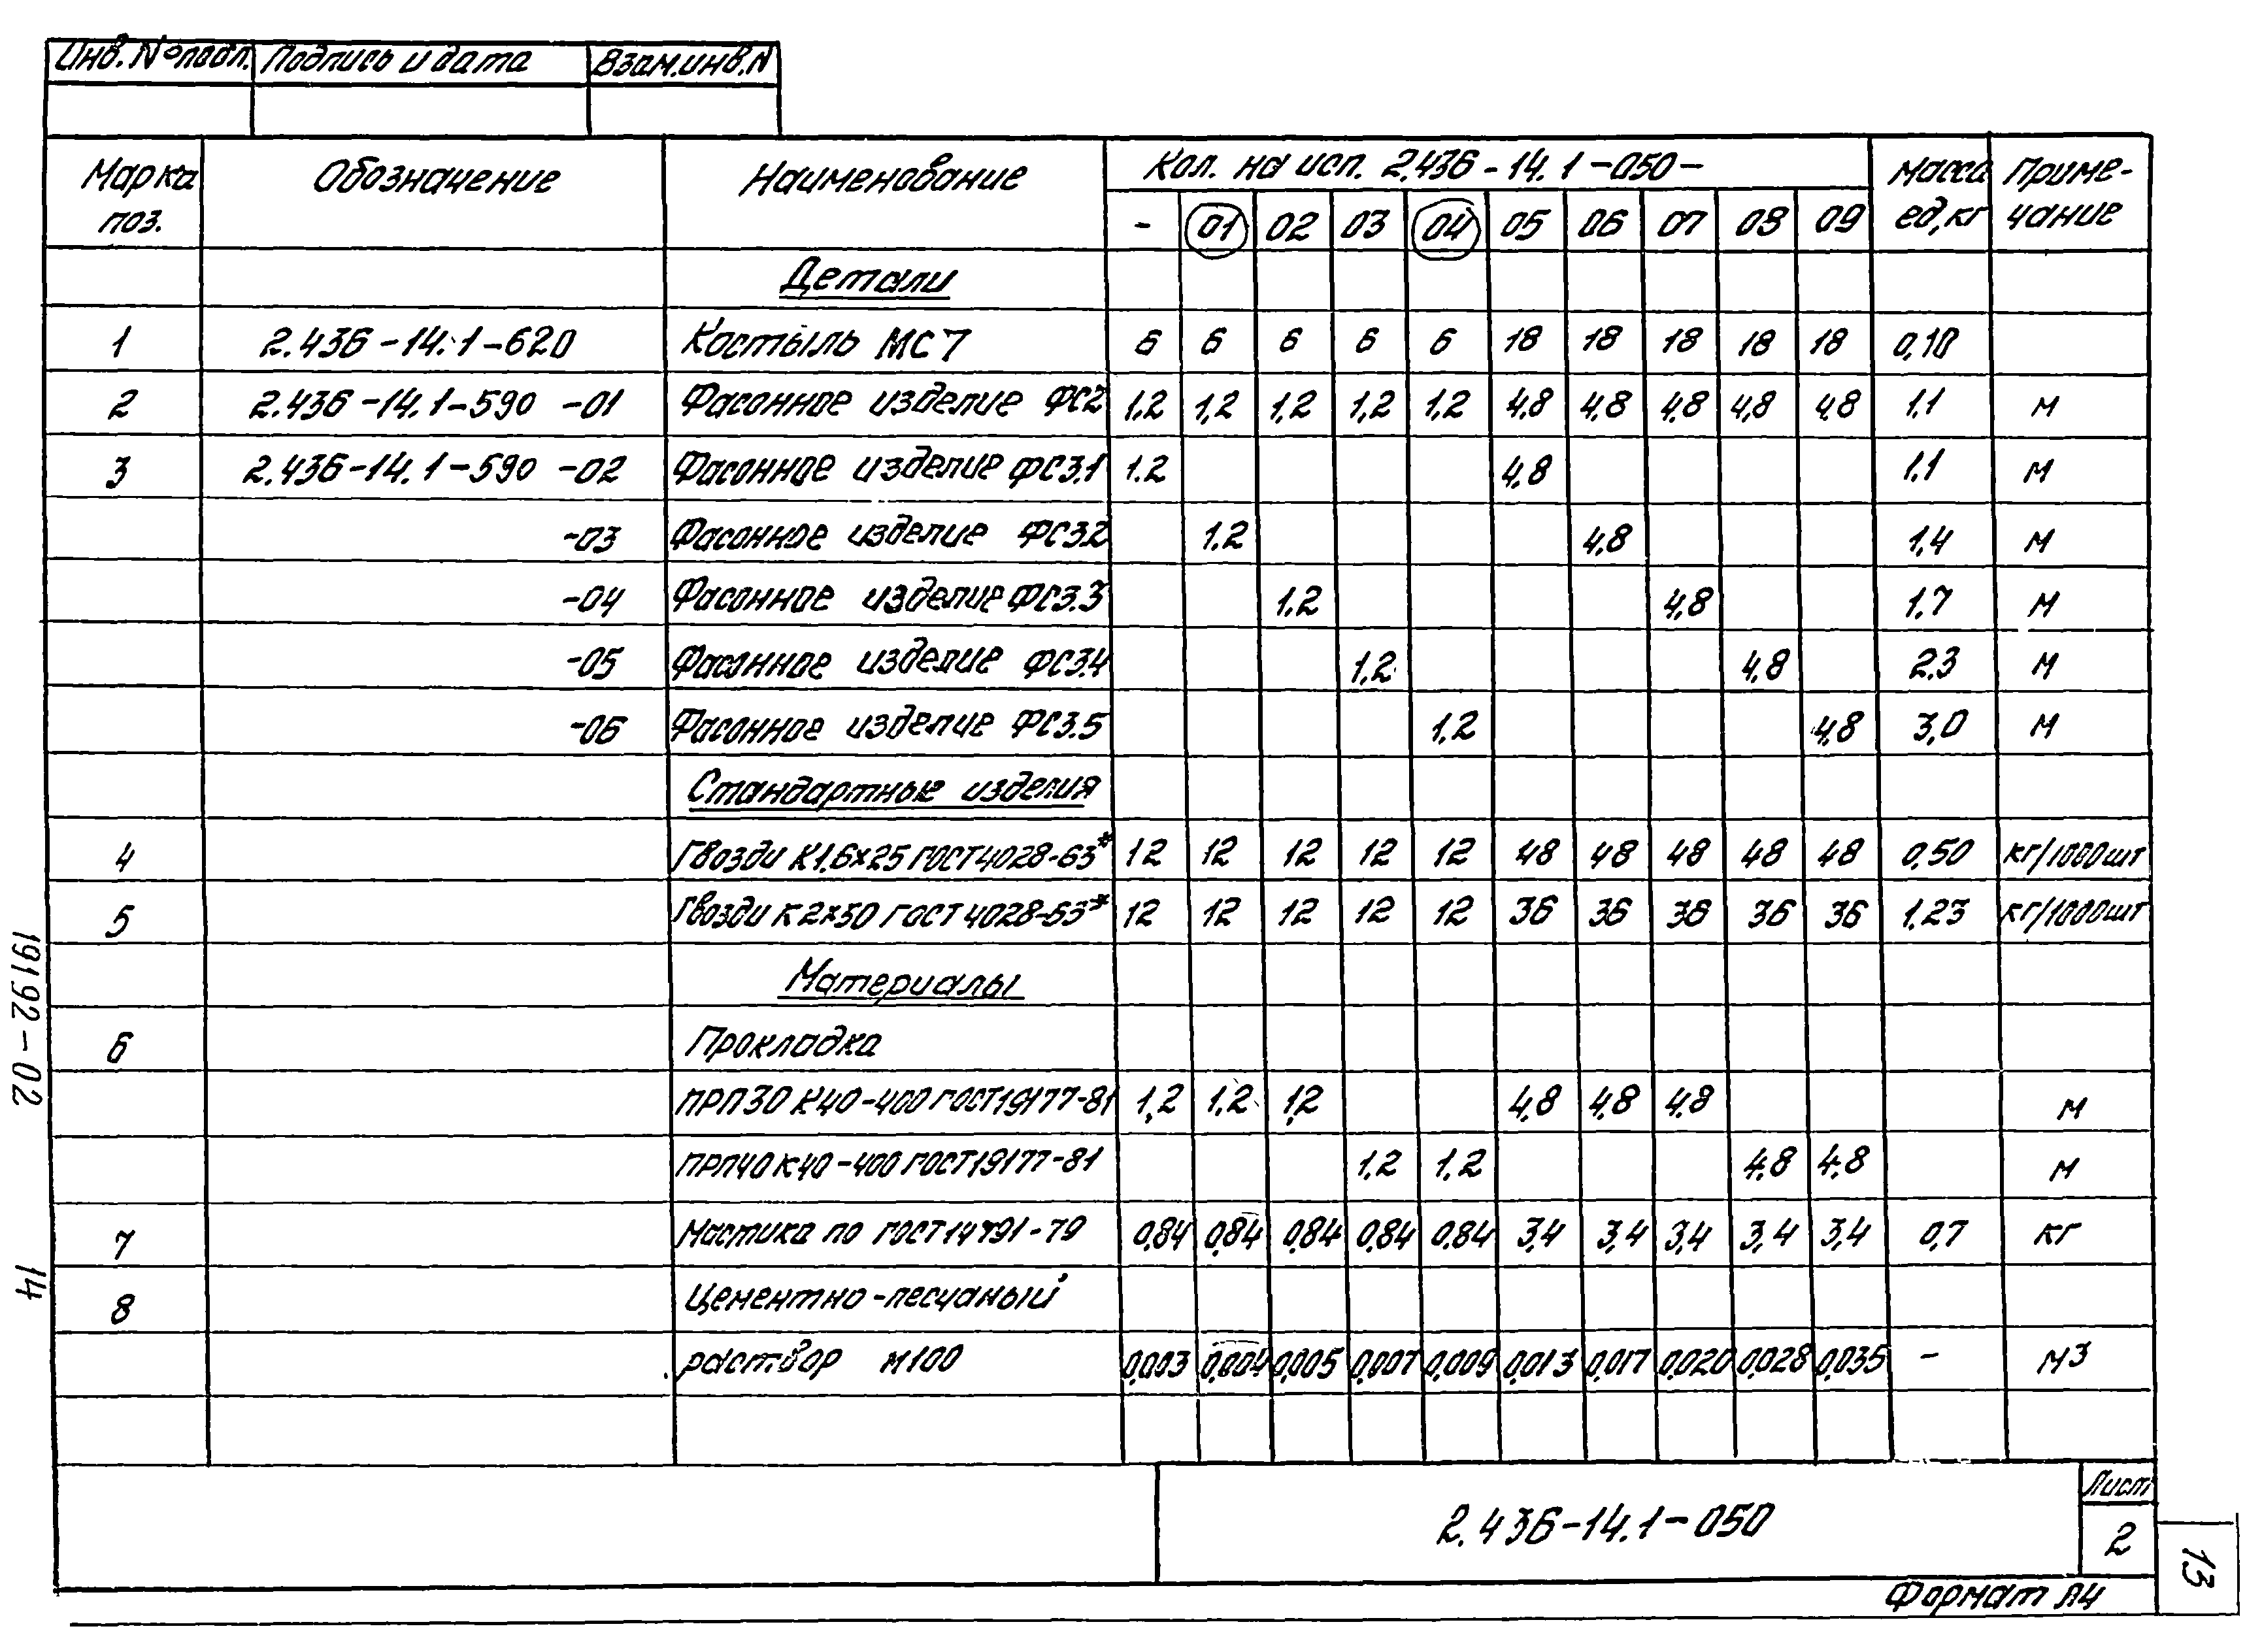 Инв. № подл. Подпись и дата Взам.инв.N
Марка поз. Обозначение Наименование Кол. на исп. 2.436-14.1-050- Масса ед,кг Примечание
- 01 02 03 04 05 06 07 08 09
Детали
1 2.436-14.1-620 Костыль МС7 6 6 6 6 6 18 18 18 18 18 0,10
2 2.436-14.1-590 -01 Фасонное изделие ФС2 1,2 1,2 1,2 1,2 1,2 4,8 4,8 4,8 4,8 4,8 1,1 м
3 2.436-14.1-590 -02 Фасонное изделие ФС3.1 1.2 4,8 1,1 м
-03 Фасонное изделие ФС3.2 1.2 4,8 1,4 м
-04 Фасонное изделие ФС3.3 1.2 4,8 1,7 м
-05 Фасонное изделие ФС3.4 1,2 4,8 2.3 м
-06 Фасонное изделие ФС3.5 1,2 4,8 3,0 м
Стандартные изделия
4 Гвозди К1.6×25 ГОСТ 4028-63* 12 12 12 12 12 48 48 48 48 48 0,50 кг/1000шт
5 Гвозди К2×50 ГОСТ 4028-63* 12 12 12 12 12 36 36 36 36 36 1,23 кг/1000шт
Материалы
6 Прокладка
ПРП30 К40-400 ГОСТ19177-81 1,2 1,2 1,2 4,8 4,8 4,8 м
ПРП40 К40-400 ГОСТ19177-81 1,2 1,2 4,8 4,8 м
7 Мастика по ГОСТ14791-79 0,84 0,84 0,84 0,84 0,84 3,4 3,4 3,4 3,4 3,4 0,7 кг
8 Цементно-песчаный
раствор М100 0,003 0,004 0,005 0,007 0,009 0,013 0,017 0,020 0,028 0,035 - м3
2.436-14.1-050
Лист
2
Формат А4
13
19192-02
14